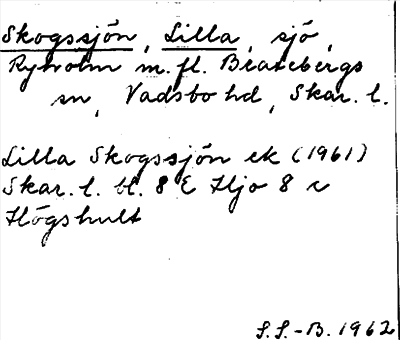 Skogssjön, Lilla, sjö,
Ryholm m. fl. Beatebergs
sn, Vadsbo hd, Skar. l.
Lilla Skogssjön ek (1961)
Skar. l. bl. 8 E Hjo 8 c
Högshult
S.S.-B. 1962